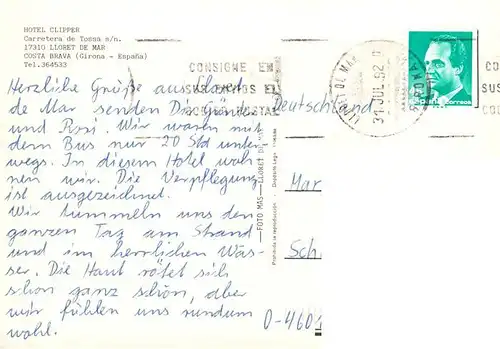 HOTEL CLIPPER
Carretera de Tossa s/n.
17310 LLORET DE MAR
COSTA BRAVA (Girona - España)
Tel.364533
CONSIGNE EN
SUS ENVIOS EL
CODIGO POSTAL
LLORET DE MAR
31 JUL 92
GIRONA
correos
CO
SUS
CO
Herzliche Grüße aus Lloret
de Mar senden Dir Günter
und Rosi. Wir waren mit
dem Bus nur 20 Std unter-
wegs. In diesem Hotel woh-
nen wir. Die Verpflegung
ist ausgezeichnet.
Wir tummeln uns den
ganzen Tag am Strand
und im herrlichen Was-
ser. Die Haut rötet sich
schon ganz schön, aber
wir fühlen uns rundum
wohl.
FOTO MAS — LLORET DE MAR
Prohibida la reproducción
Deutschland
Mar
Sch
O-4601